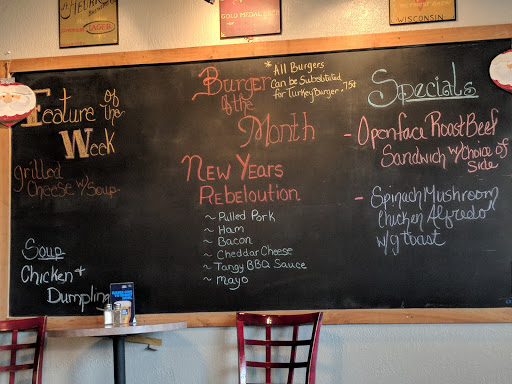 LAGER
GOLD MEDAL BEER
WISCONSIN
Feature of
The
Week
grilled
Cheese w/Soup
Soup
Chicken &
Dumpling
Burger
of the
Month
* All Burgers
Can be Substituted
for Turkey Burger .75¢
New Years
Rebeloution
~ Pulled Pork
~ Ham
~ Bacon
~ Cheddar Cheese
~ Tangy BBQ Sauce
~ Mayo
Specials
- Openface Roast Beef
Sandwich w/Choice of
Side
- Spinach Mushroom
Chicken Alfredo
w/g toast